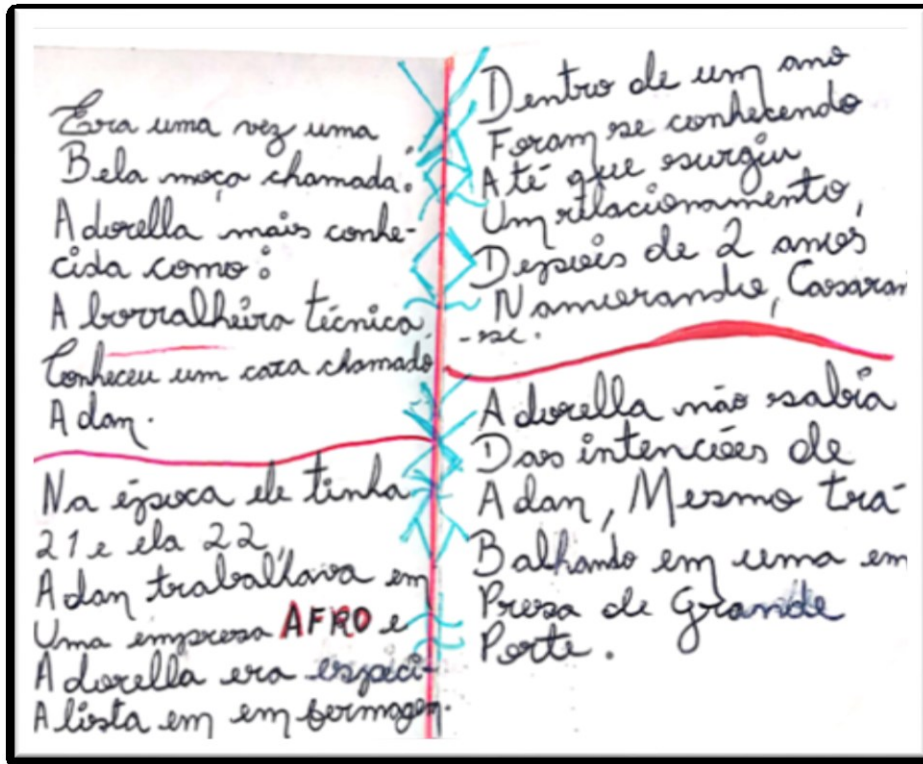 Era uma vez uma
Bela moça chamada:
Adorella mais conhe-
cida como:
A borralheira técnica,
Conheceu um cara chamado
Adan.
Na época ele tinha
21 e ela 22,
Adan trabalhava em
Uma empresa AFRO e
Adorella era especi-
Alista em em fermagem.
Dentro de um ano
Foram se conhecendo
Até que surgiu
Um relacionamento,
Depois de 2 anos
Namorando, Casaram
-se.
Adorella não sabia
Das intenções de
Adan, Mesmo tra-
Balhando em uma em
Presa de Grande
Porte.